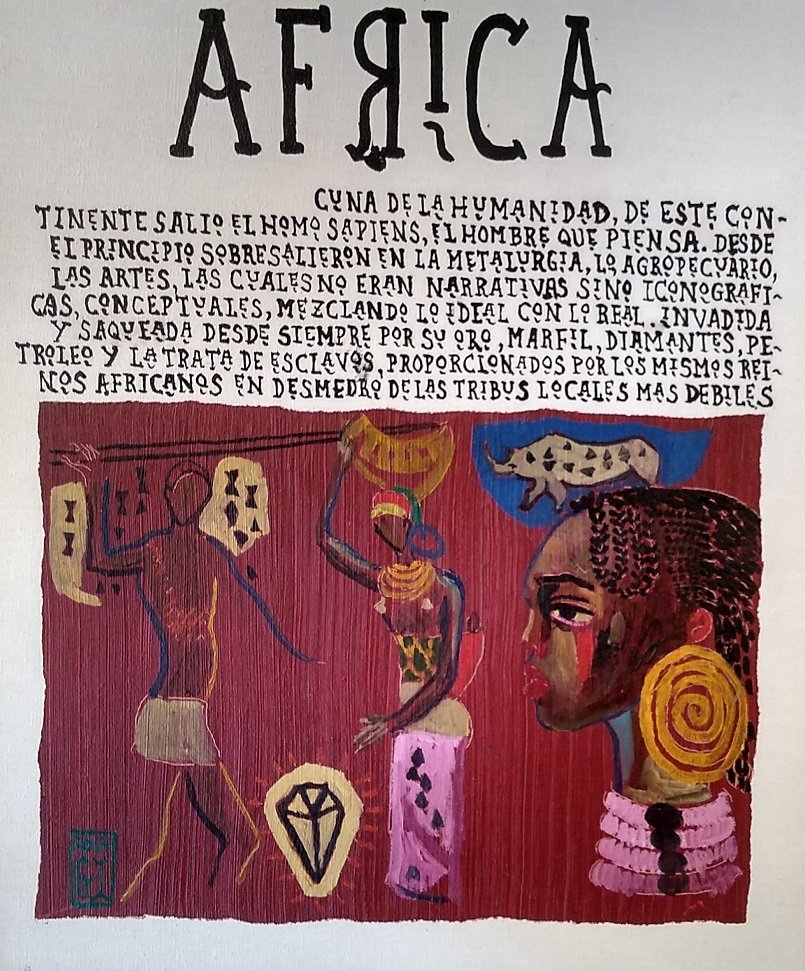 AFRICA
CUNA DE LA HUMANIDAD, DE ESTE CON-
TINENTE SALIO EL HOMO SAPIENS, EL HOMBRE QUE PIENSA. DESDE
EL PRINCIPIO SOBRESALIERON EN LA METALURGIA, LO AGROPECUARIO,
LAS ARTES, LAS CUALES NO ERAN NARRATIVAS SINO ICONOGRAFI-
CAS, CONCEPTUALES, MEZCLANDO LO IDEAL CON LO REAL. INVADIDA
Y SAQUEADA DESDE SIEMPRE POR SU ORO, MARFIL, DIAMANTES, PE-
TROLEO Y LA TRATA DE ESCLAVOS, PROPORCIONADOS POR LOS MISMOS REI-
NOS AFRICANOS EN DESMEDRO DE LAS TRIBUS LOCALES MAS DEBILES